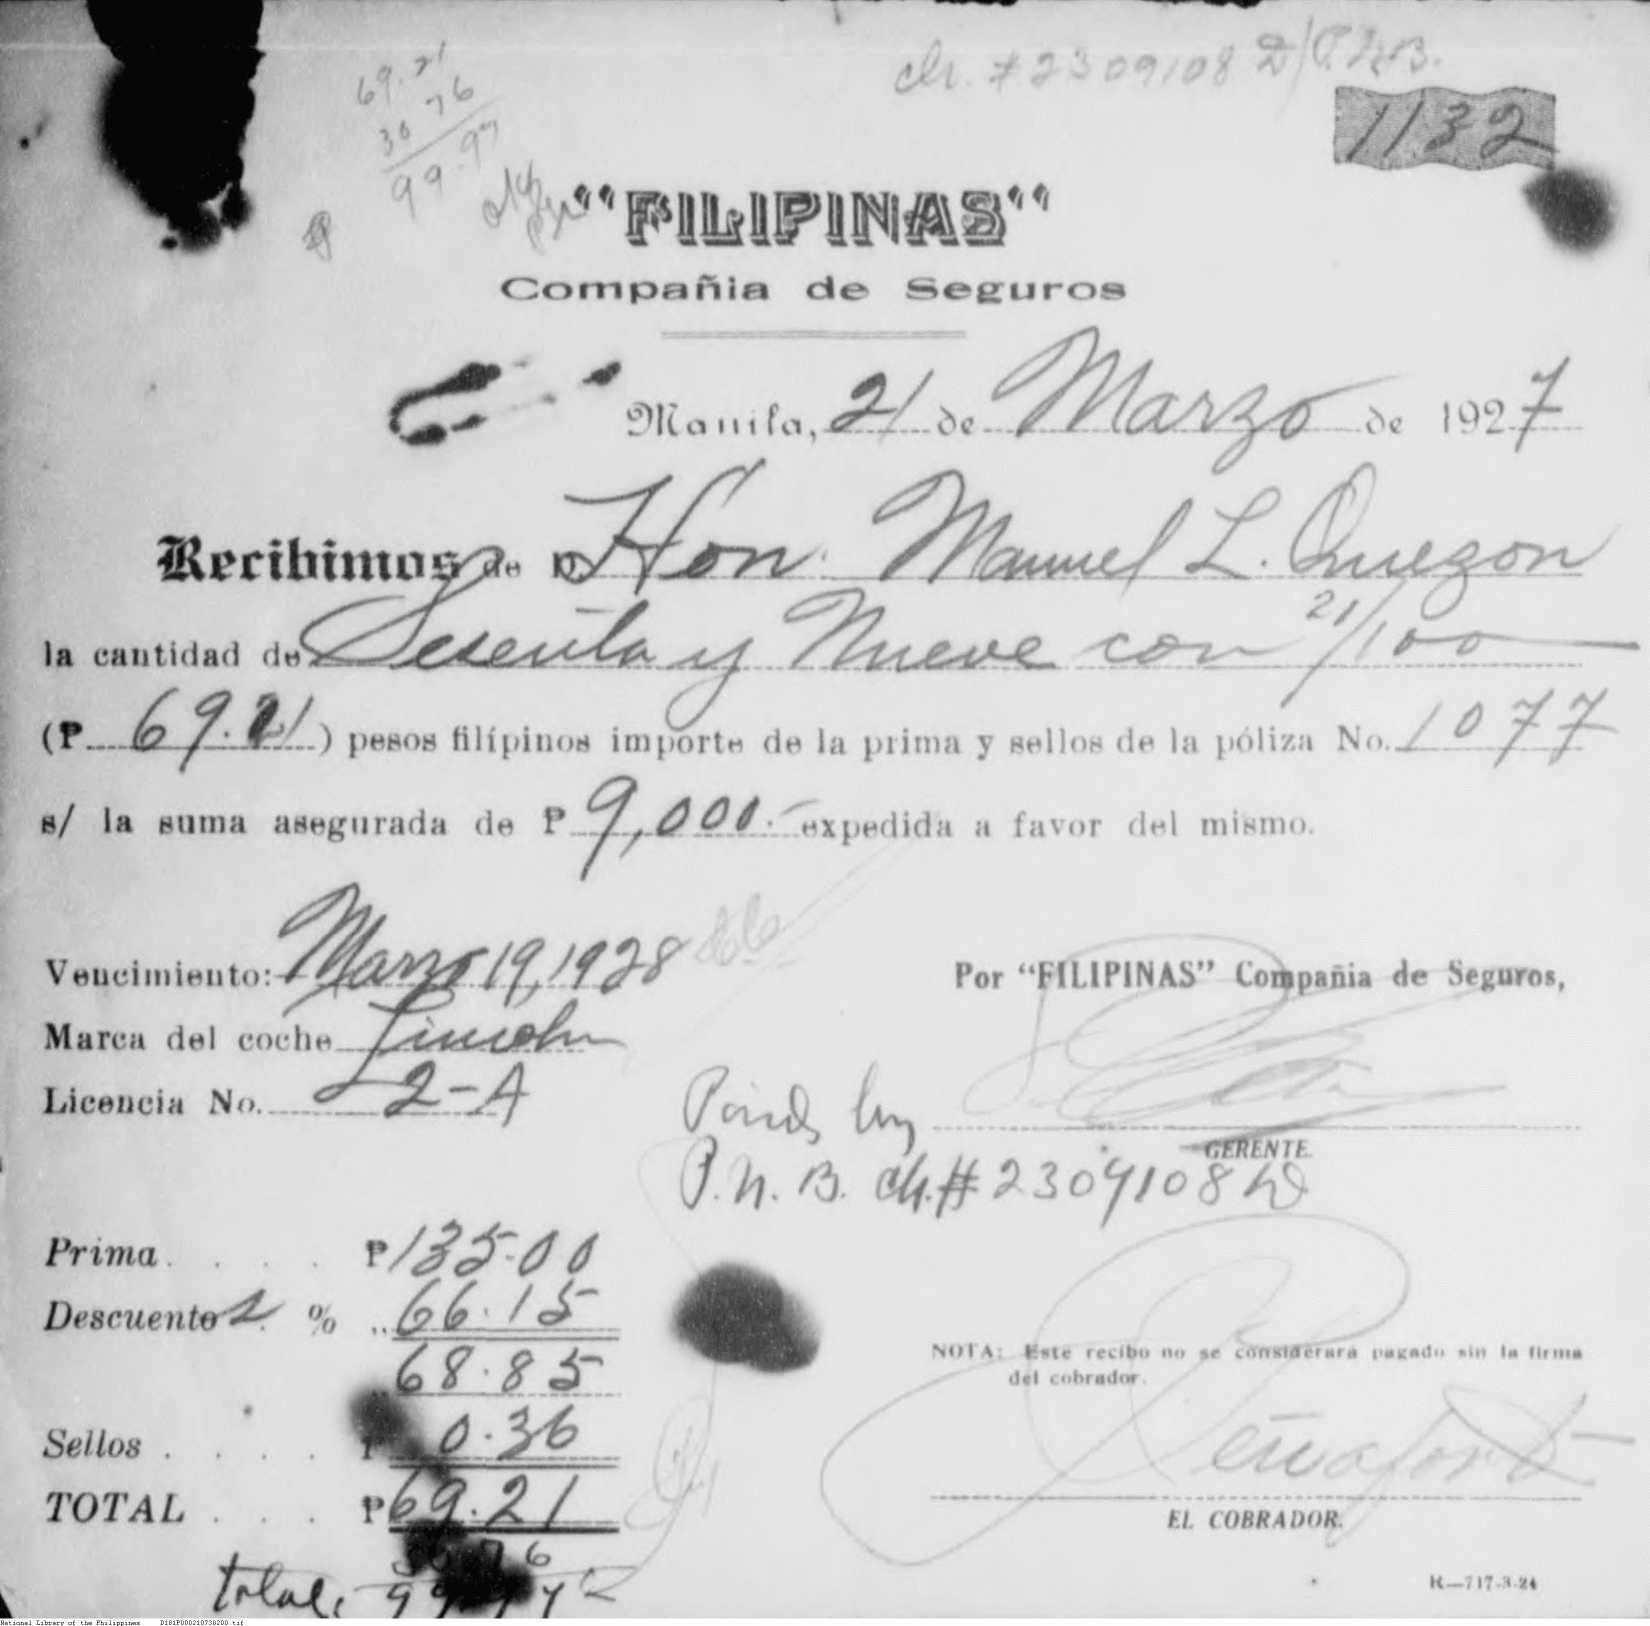 69.21
30 76
99.97
ch. #2309108 D/P.N.B.
1132
"FILIPINAS"
Compañia de Seguros
Manila, 21 de Marzo de 1927
Recibimos de D. Hon. Manuel L. Quezon
la cantidad de Sesenta y Nueve con 21/100
(₱ 69.21) pesos filipinos importe de la prima y sellos de la póliza No. 1077
s/ la suma asegurada de ₱ 9,000.- expedida a favor del mismo.
Vencimiento: Marzo 19, 1928
Marca del coche Lincoln
Licencia No. 2-A
Por "FILIPINAS" Compañia de Seguros,
GERENTE.
P.N.B. ch. # 2309108 D
Prima . . . . ₱ 135.00
Descuento % ,, 66.15
68.85
Sellos . . . . ₱ 0.36
TOTAL . . . ₱ 69.21
total,
NOTA: Este recibo no se considerará pagado sin la firma
del cobrador.
Peñafort
EL COBRADOR.
R—717-3-24
National Library of the Philippines D181P000210730200.tif